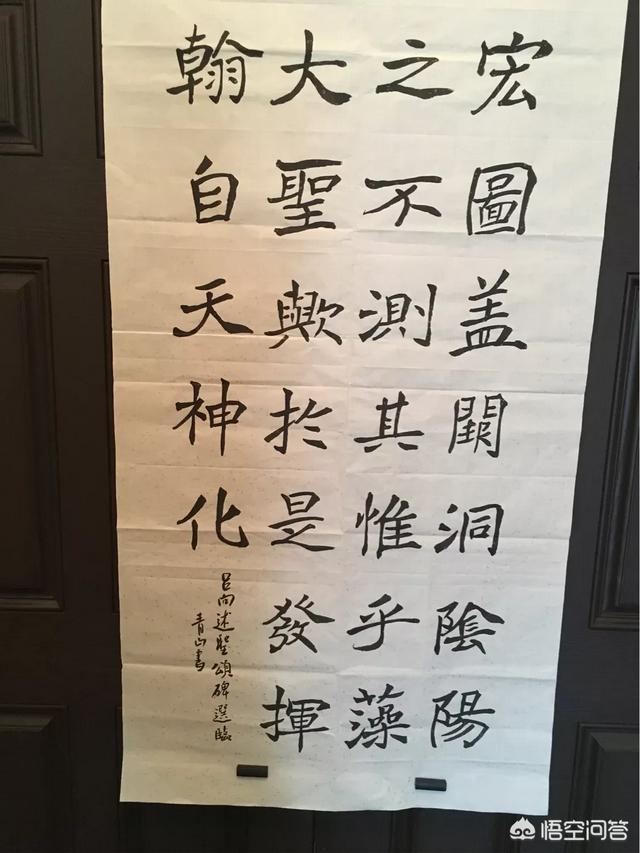 宏圖盖闢洞陰陽
之不測其惟乎藻
大聖歟於是發揮
翰自天神化
吕向述聖頌碑選臨
青山書
悟空问答